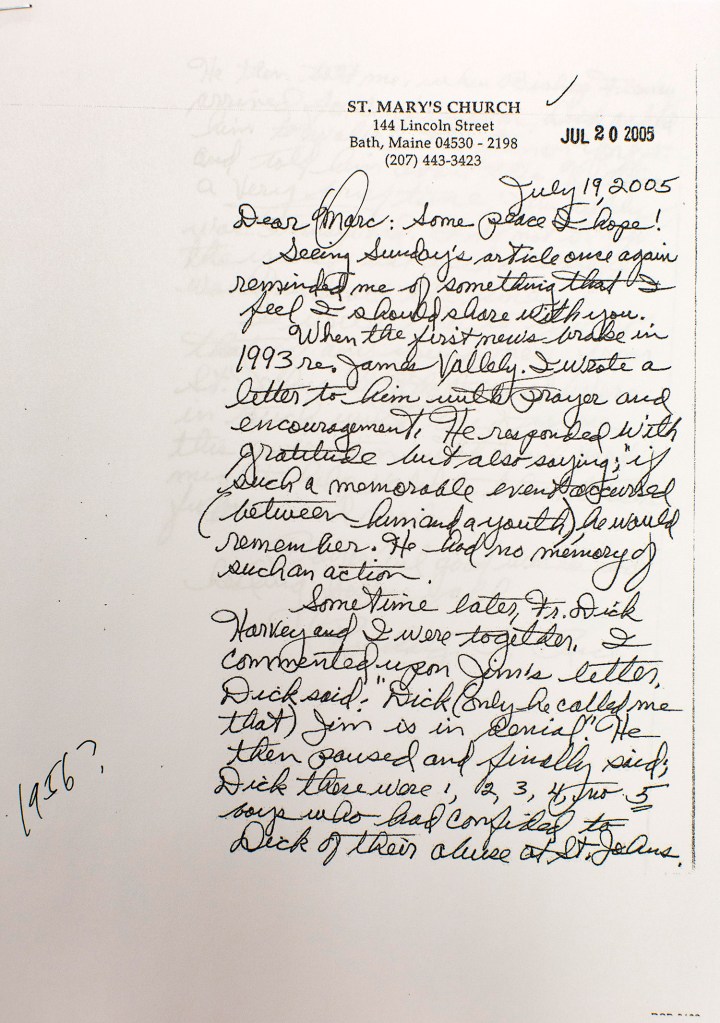 ST. MARY'S CHURCH
144 Lincoln Street
Bath, Maine 04530 - 2198
(207) 443-3423
JUL 20 2005
July 19, 2005
Dear Marc: Some peace I hope!
Seeing Sunday's article once again
reminded me of something that I
feel I should share with you.
When the first news broke in
1993 re. James Vallely. I wrote a
letter to him with prayer and
encouragement. He responded with
gratitude but also saying; "if
such a memorable event occurred
(between him and a youth) he would
remember. He had no memory of
such an action.
Sometime later, Fr. Dick
Harvey and I were together. I
commented upon Jim's letter.
Dick said: "Dick (only he called me
that) Jim is in denial." He
then paused and finally said;
Dick there were 1, 2, 3, 4, no 5
boys who had confided to
Dick of their abuse at St. Johns.
1956?